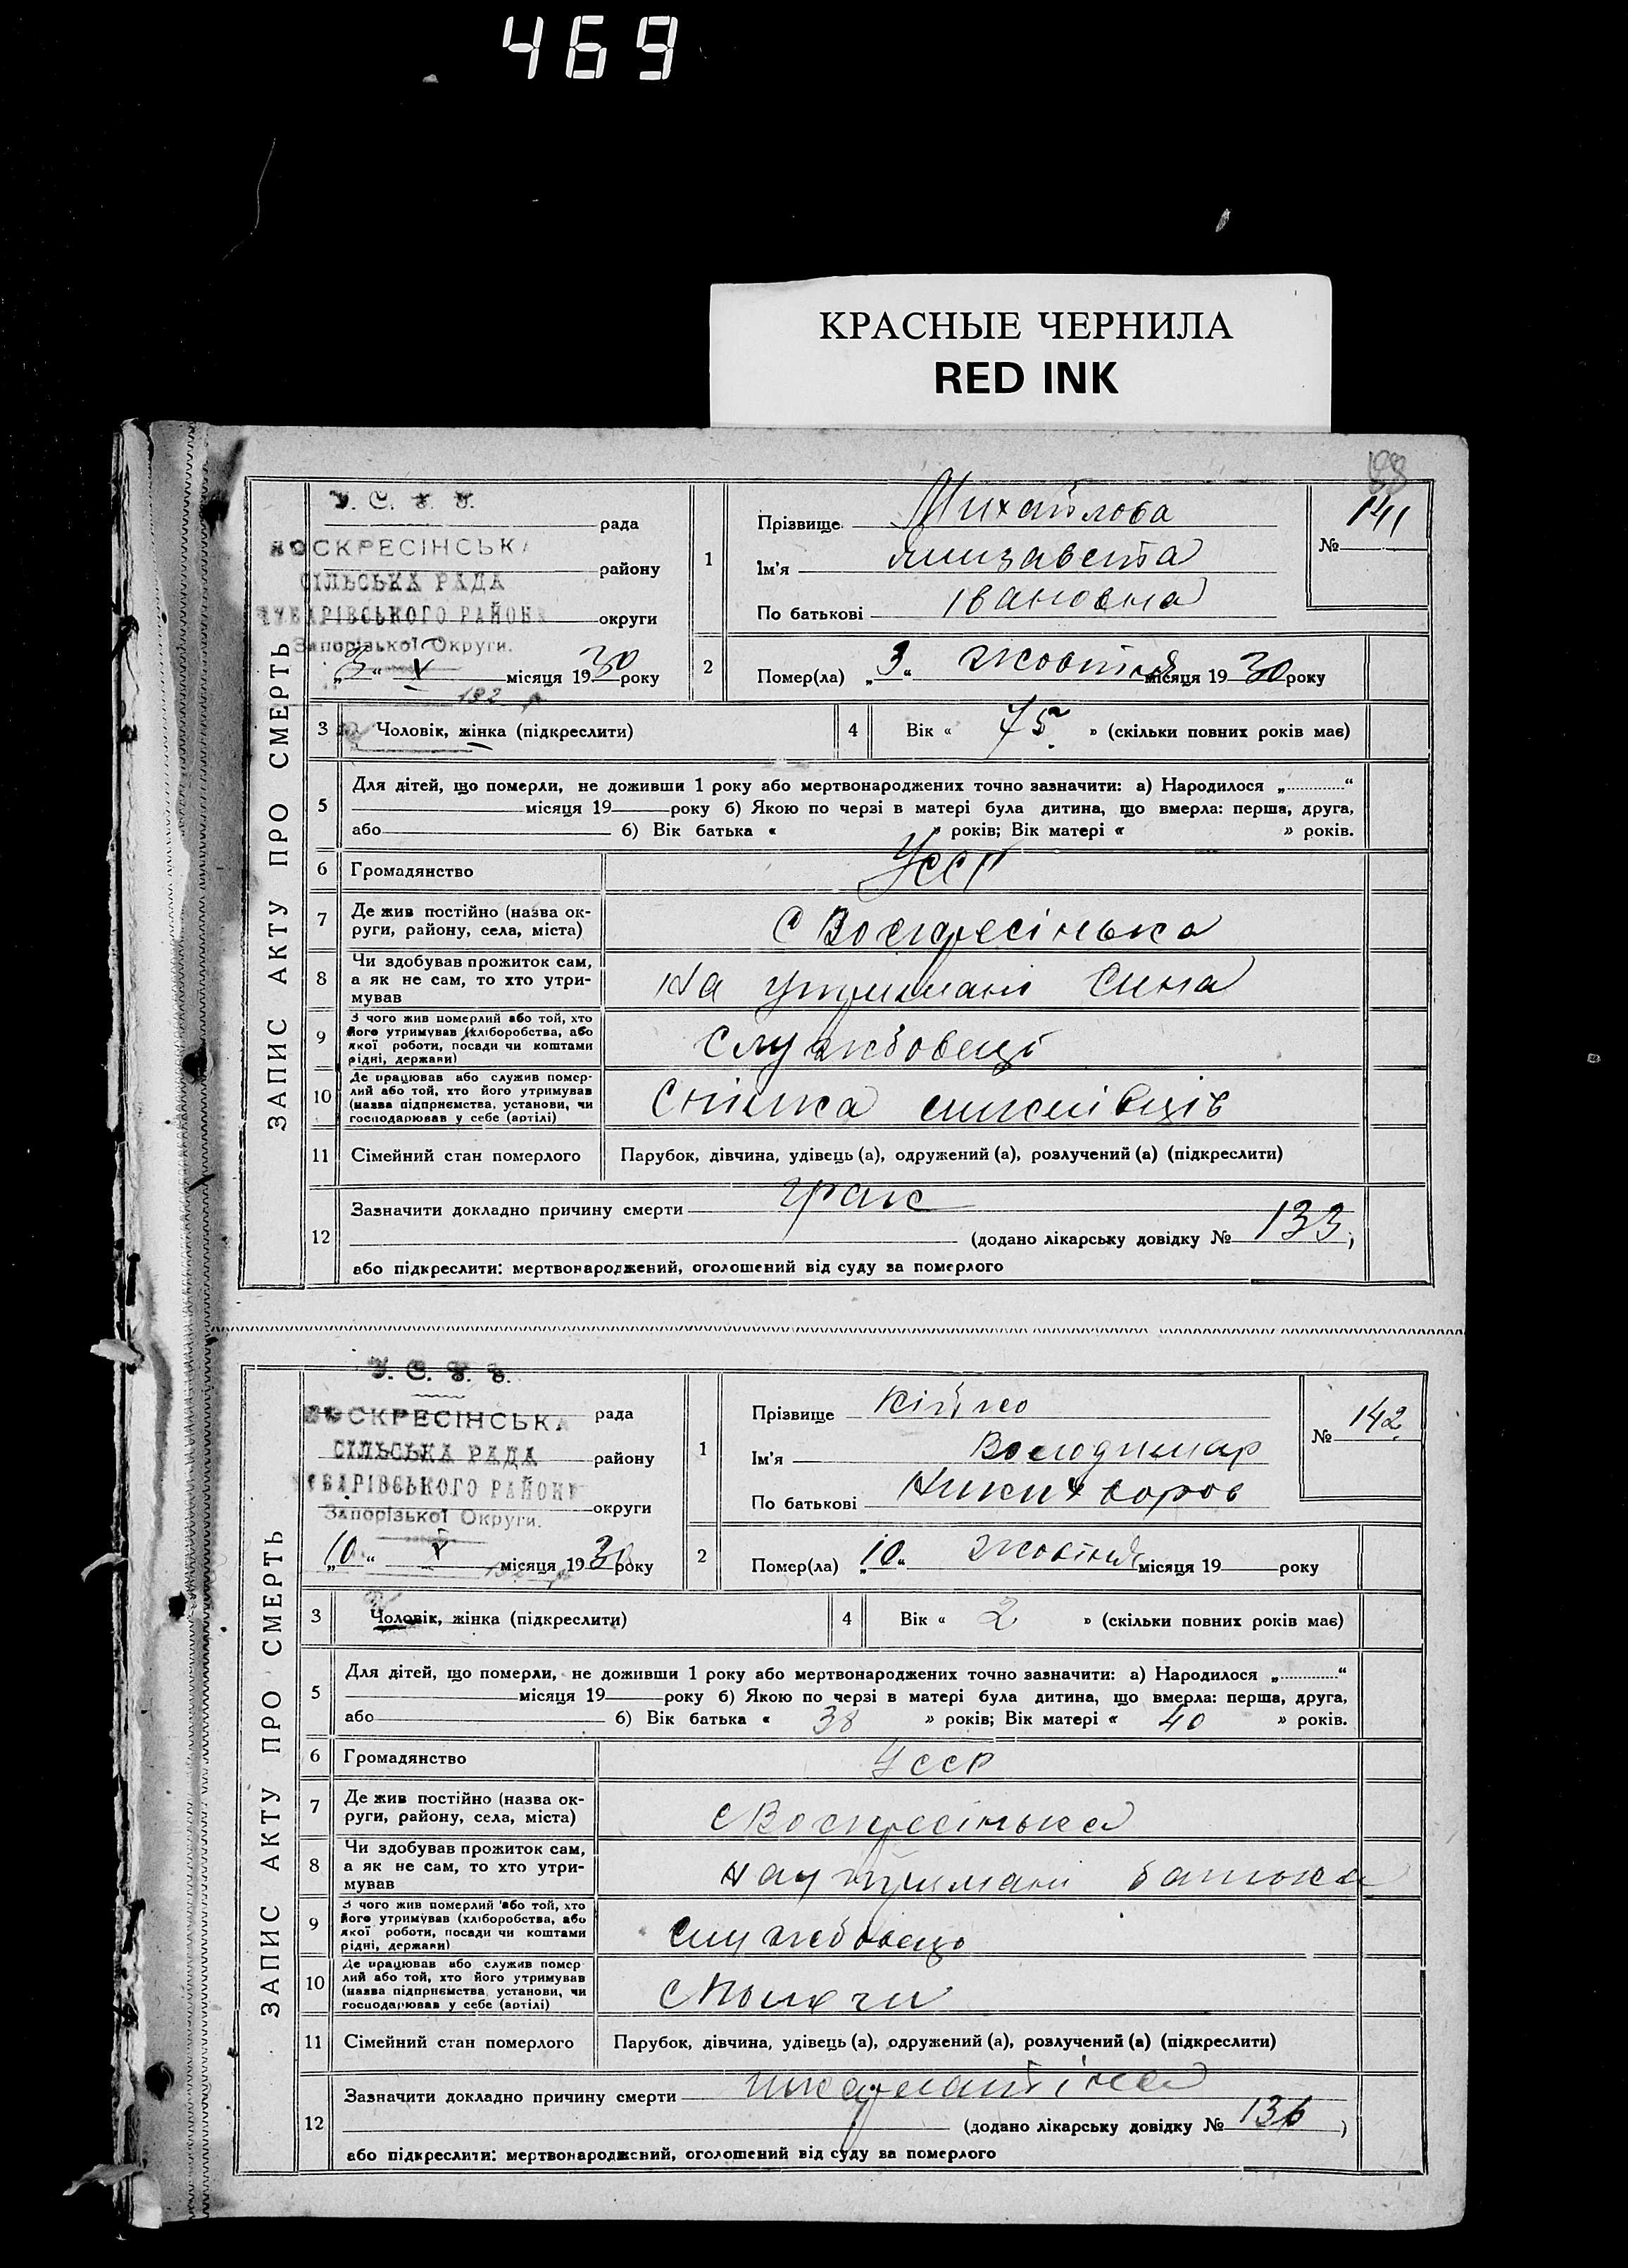 469
КРАСНЫЕ ЧЕРНИЛА
RED INK
ЗАПИС АКТУ ПРО СМЕРТЬ
У. С. Р. Р.
рада
ВОСКРЕСІНСЬКА
району
СІЛЬСЬКА РАДА
ЧУБАРІВСЬКОГО РАЙОНУ
округи
Запорізької Округи.
„3“ X місяця 1930 року
192 р
1
Прізвище Михайлова
Ім'я Лизавета
По батькові Івановна
№ 141
2
Помер(ла) „3“ жовтня місяця 1930 року
3 Чоловік, жінка (підкреслити)
4 Вік « 75 » (скільки повних років має)
5 Для дітей, що померли, не доживши 1 року або мертвонароджених точно зазначити: а) Народилося „ “
місяця 19 року б) Якою по черзі в матері була дитина, що вмерла: перша, друга,
або б) Вік батька « » років; Вік матері « » років.
6 Громадянство УССР
7 Де жив постійно (назва ок-
руги, району, села, міста)
С Воскресінька
8 Чи здобував прожиток сам,
а як не сам, то хто утри-
мував
На утримані сина
9 З чого жив померлий або той, хто
його утримував (хліборобства, або
якої роботи, посади чи коштами
рідні, держави)
Службовеці
10 Де працював або служив помер-
лий або той, хто його утримував
(назва підприємства, установи, чи
господарював у себе (артілі)
Спілка
11 Сімейний стан померлого Парубок, дівчина, удівець (а), одружений (а), розлучений (а) (підкреслити)
12 Зазначити докладно причину смерти
(додано лікарську довідку № 133;
або підкреслити: мертвонароджений, оголошений від суду за померлого
ЗАПИС АКТУ ПРО СМЕРТЬ
У. С. Р. Р.
рада
ВОСКРЕСІНСЬКА
СІЛЬСЬКА РАДА
району
ЧУБАРІВСЬКОГО РАЙОНУ
округи
Запорізької Округи.
„10“ X місяця 1930 року
1
Прізвище Кійко
Ім'я Володимар
По батькові Никихворов
№ 142
2
Помер(ла) „10“ жовтня місяця 19 року
3 Чоловік, жінка (підкреслити)
4 Вік « 2 » (скільки повних років має)
5 Для дітей, що померли, не доживши 1 року або мертвонароджених точно зазначити: а) Народилося „ “
місяця 19 року б) Якою по черзі в матері була дитина, що вмерла: перша, друга,
або б) Вік батька « 38 » років; Вік матері « 40 » років.
6 Громадянство УССР
7 Де жив постійно (назва ок-
руги, району, села, міста)
С Воскресінька
8 Чи здобував прожиток сам,
а як не сам, то хто утри-
мував
На утримані батька
9 З чого жив померлий або той, хто
його утримував (хліборобства, або
якої роботи, посади чи коштами
рідні, держави)
Службовець
10 Де працював або служив помер-
лий або той, хто його утримував
(назва підприємства, установи, чи
господарював у себе (артілі)
11 Сімейний стан померлого Парубок, дівчина, удівець (а), одружений (а), розлучений (а) (підкреслити)
12 Зазначити докладно причину смерти шкарлатіна
(додано лікарську довідку № 136 )
або підкреслити: мертвонароджений, оголошений від суду за померлого